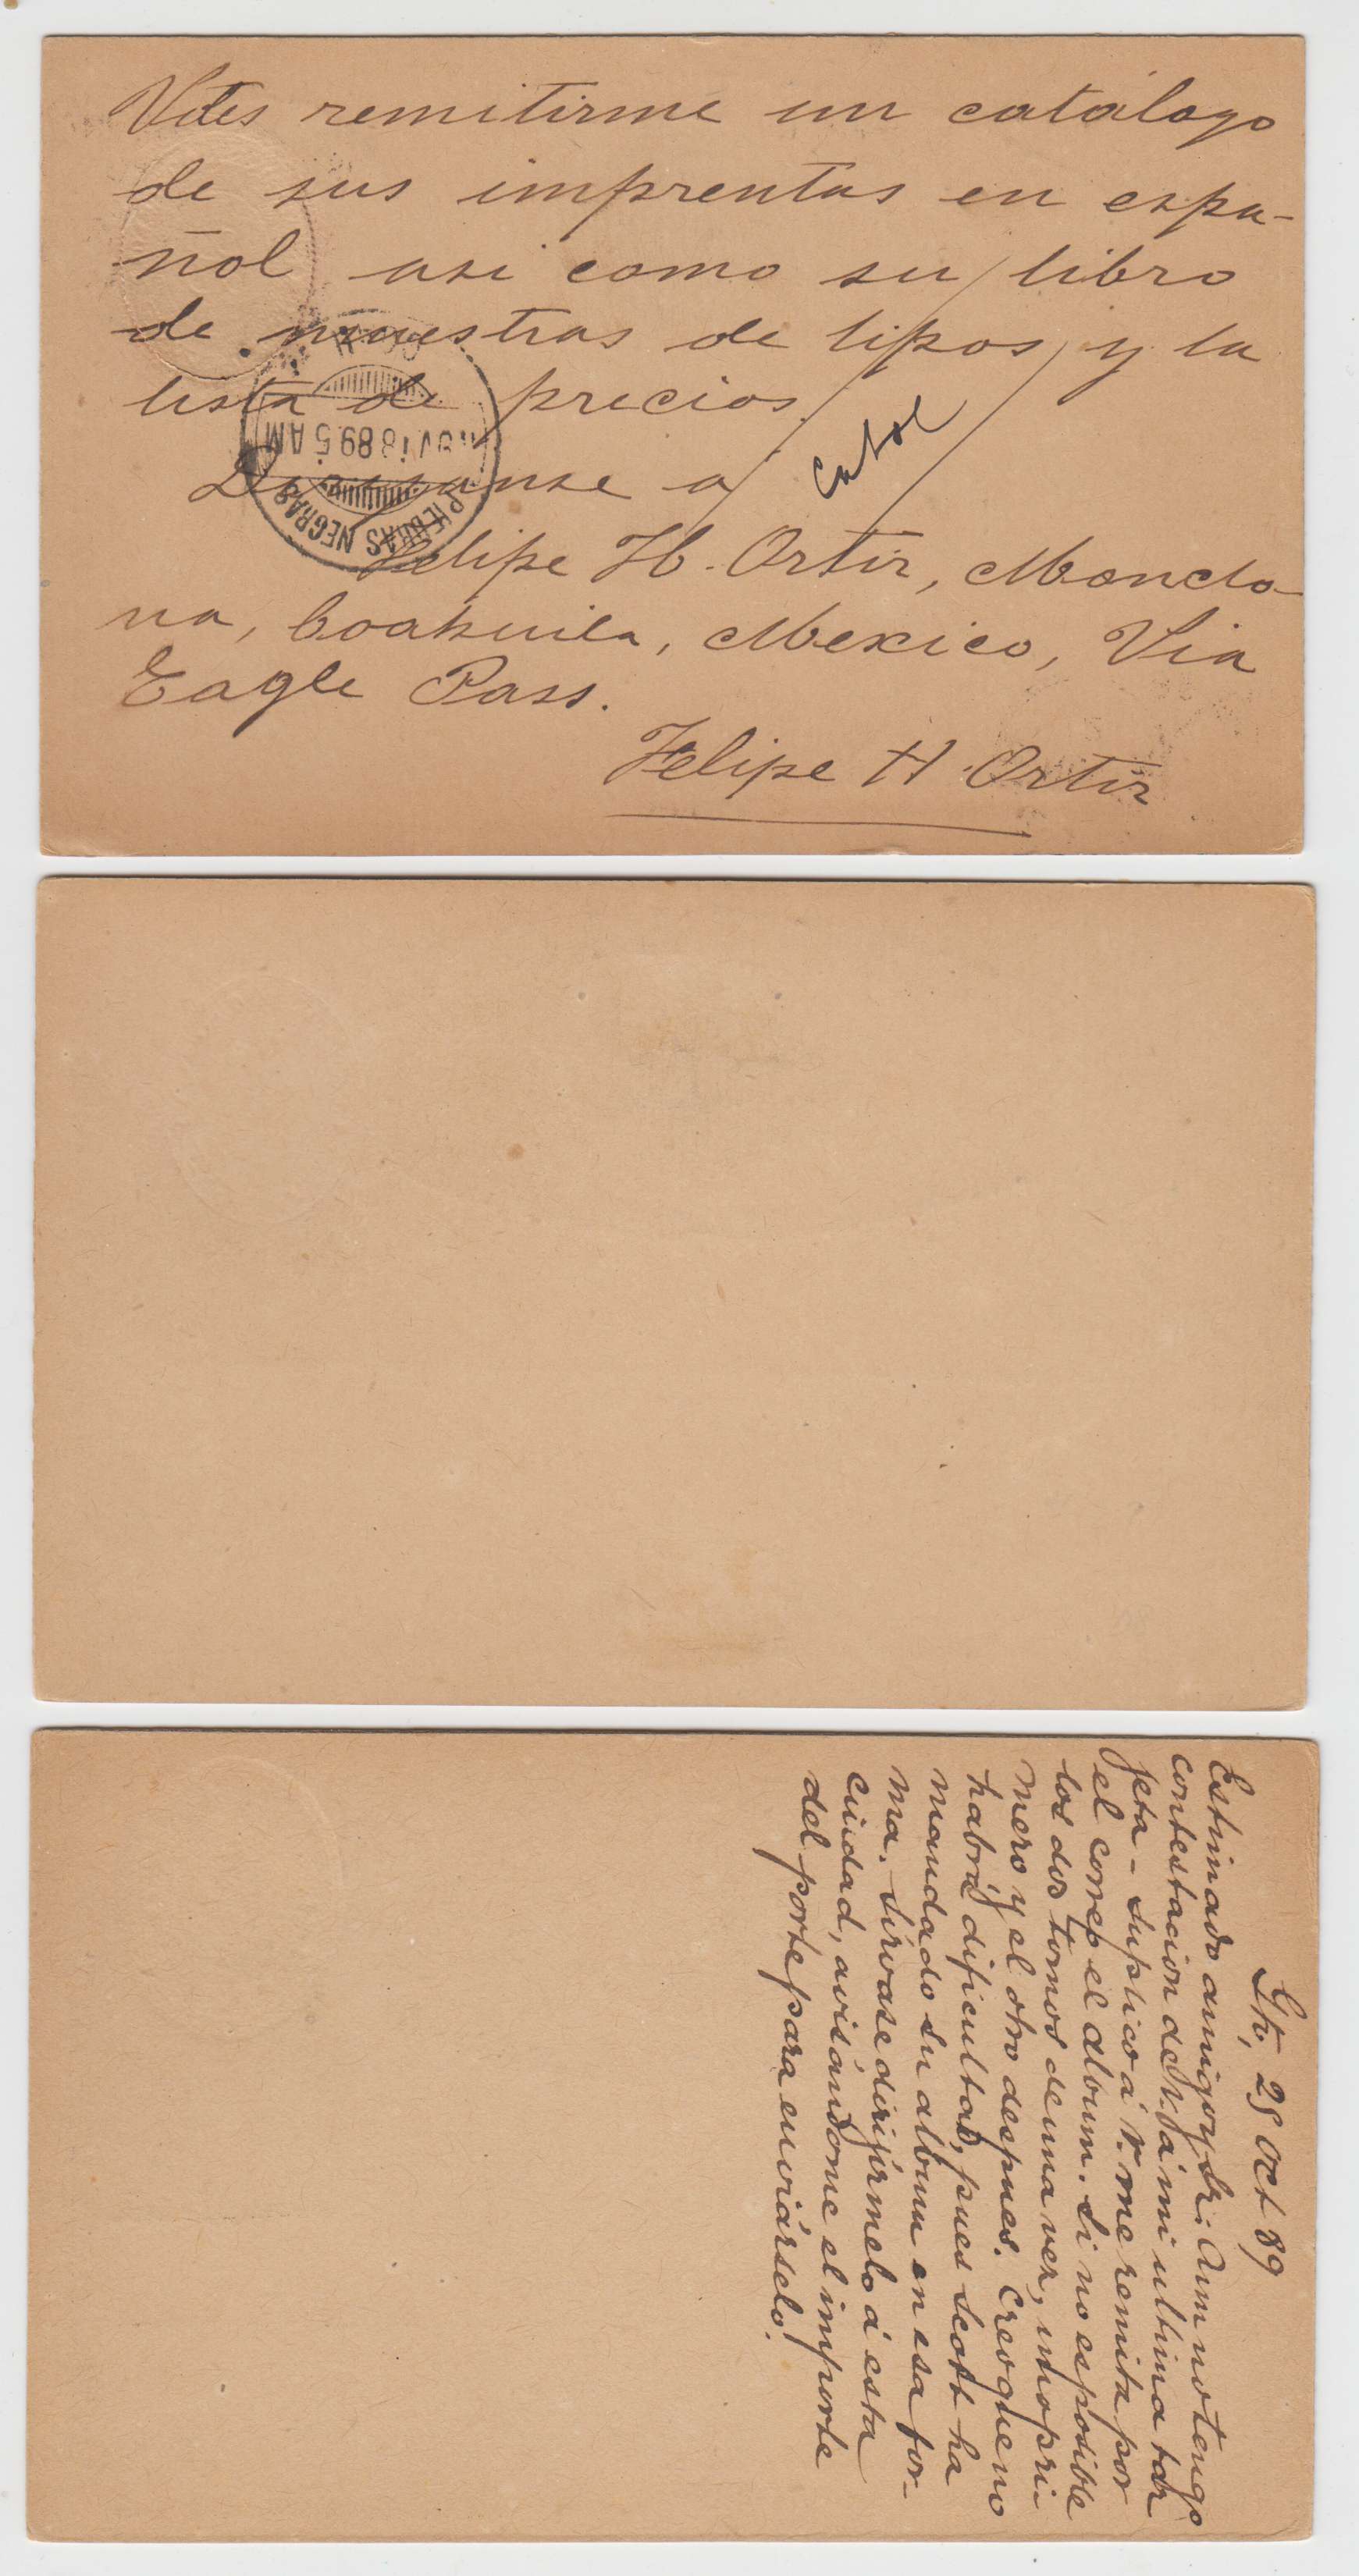 Vdes remitirme un catálogo
de sus imprentas en espa-
ñol asi como su libro
de muestras de tipos y la
lista de precios.
Dirijanse a
Felipe H. Ortiz, Monclo-
va, Coahuila, Mexico, Via
Eagle Pass.
Felipe H. Ortiz
NOV 18 89 5 AM
PIEDRAS NEGRAS
Gto, 25 Oct 89
Estimado amigo y Sr: Aun no tengo
contestacion de V. á mi ultima tar
jeta - Suplico á V. me remita por
el correo el album. Si no es posible
los dos tomos de una vez, uno pri-
mero y el otro despues. Creo que no
habrá dificultad, pues Scott ha
mandado su album en esa for-
ma. Sirvase dirijirmelo á esta
ciudad, avisándome el importe
del porte para enviárselo.